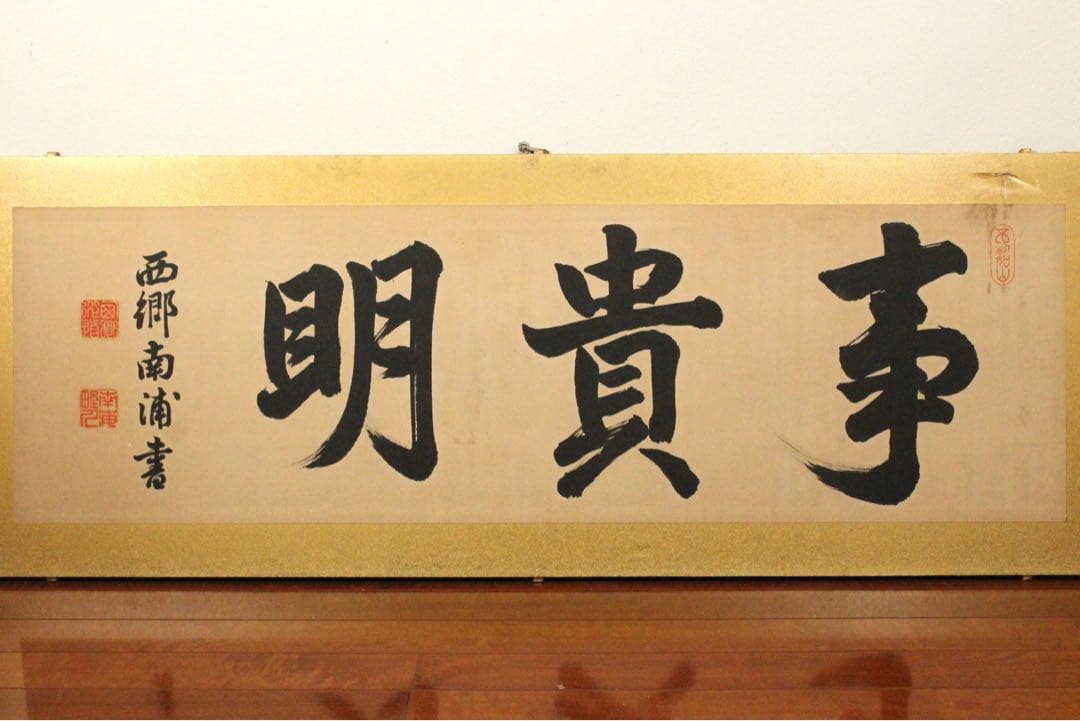 事貴明
西郷南浦書